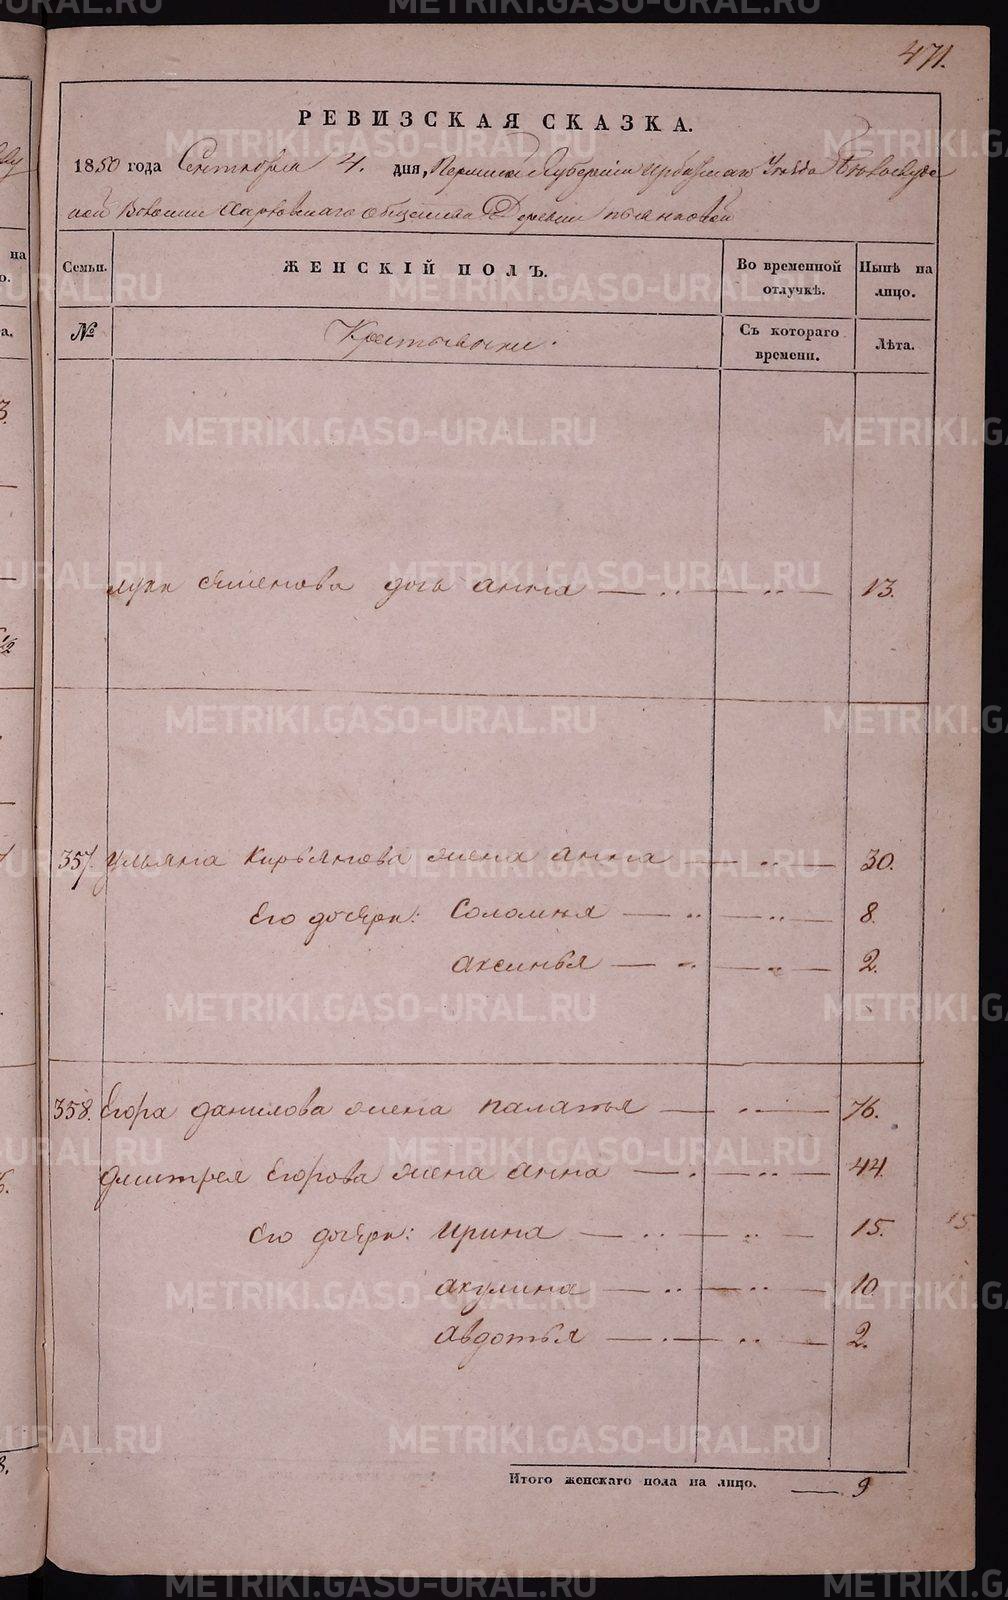 471.
РЕВИЗСКАЯ СКАЗКА.
1850 года Сентября 4. дня, Пермской Губернии Ирбитскаго Уѣзда
ской Волости Общества Деревни
Семьи. ЖЕНСКІЙ ПОЛЪ. Во временной отлучкѣ. Нынѣ на лицо.
№ Съ котораго времени. Лѣта.
луки дочь анна 13.
357. ульяна Кирьянова жена анна 30.
Его дочери: Соломия 8.
аксинья 2.
358. Егора данилова жена палатья 76.
дмитрея Егорова жена анна 44.
Его дочери: ирина 15.
акулина 10.
авдотья 2.
Итого женскаго пола на лицо. 9
METRIKI.GASO-URAL.RU